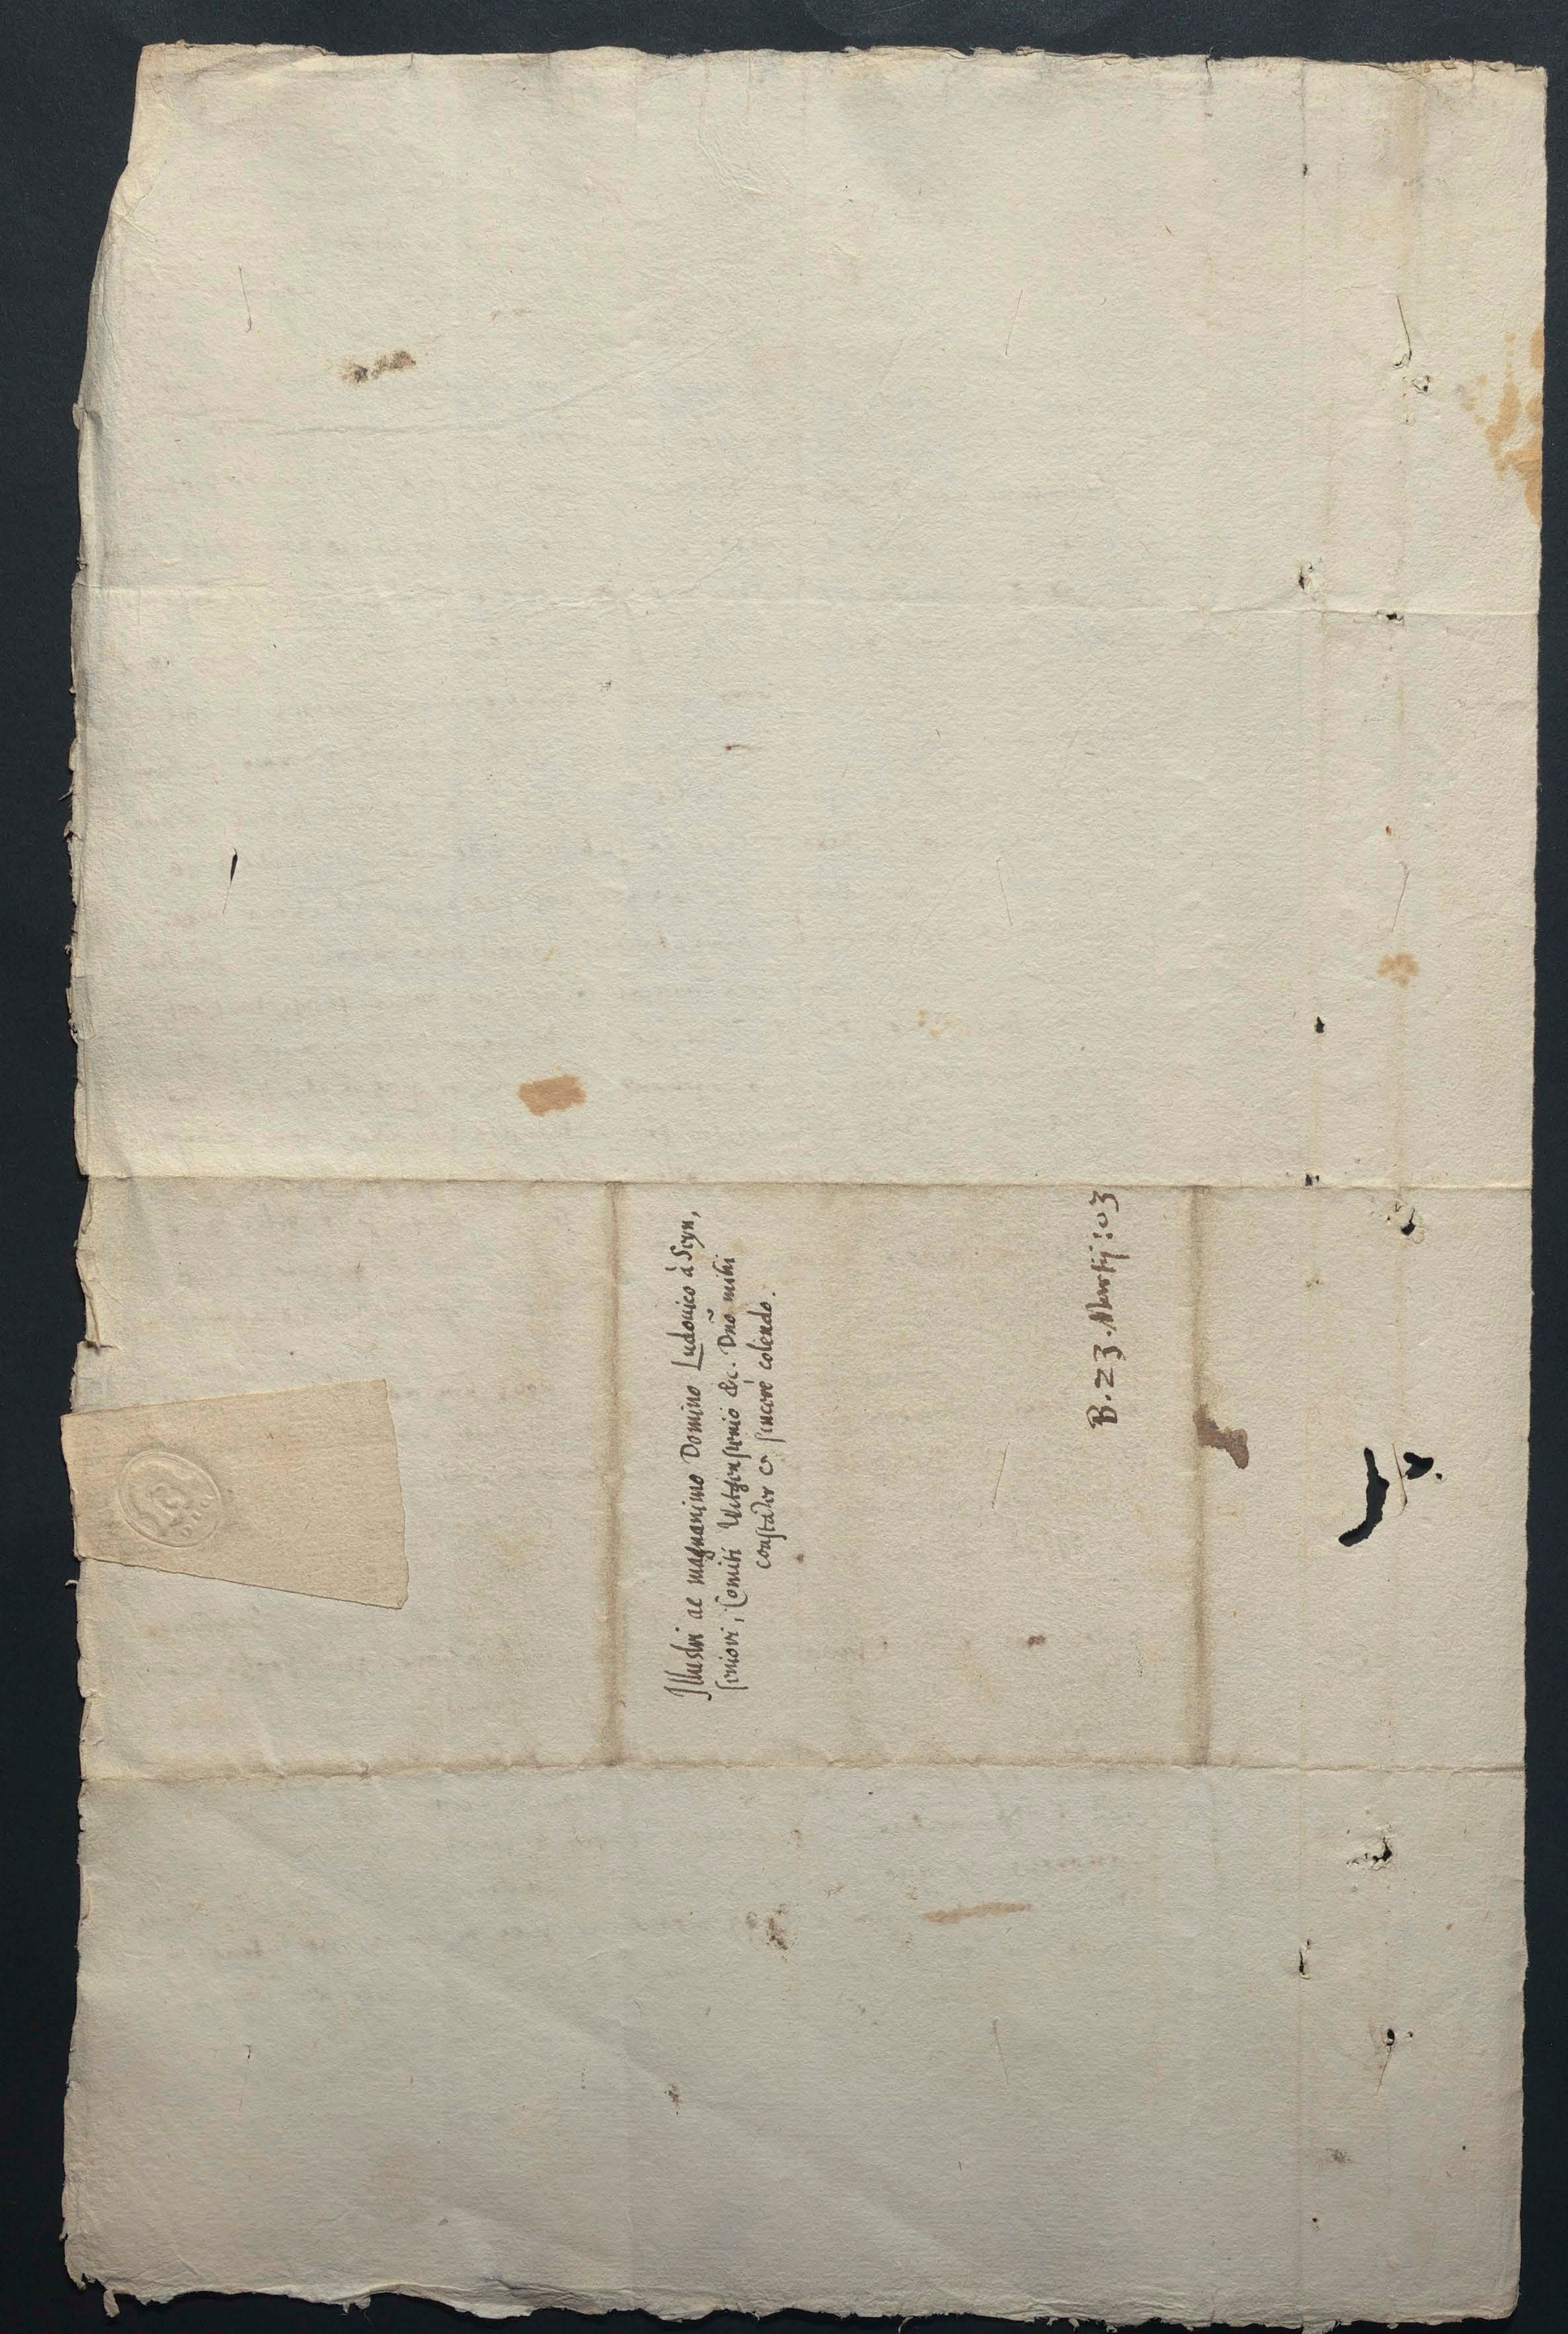 Illustri ac magnanimo Domino Ludouico à Seyn,
seniori, Comiti Witgensteinio &c. Dnõ mihi
constãter & sincerè colendo.
B. 23. Martij: 03